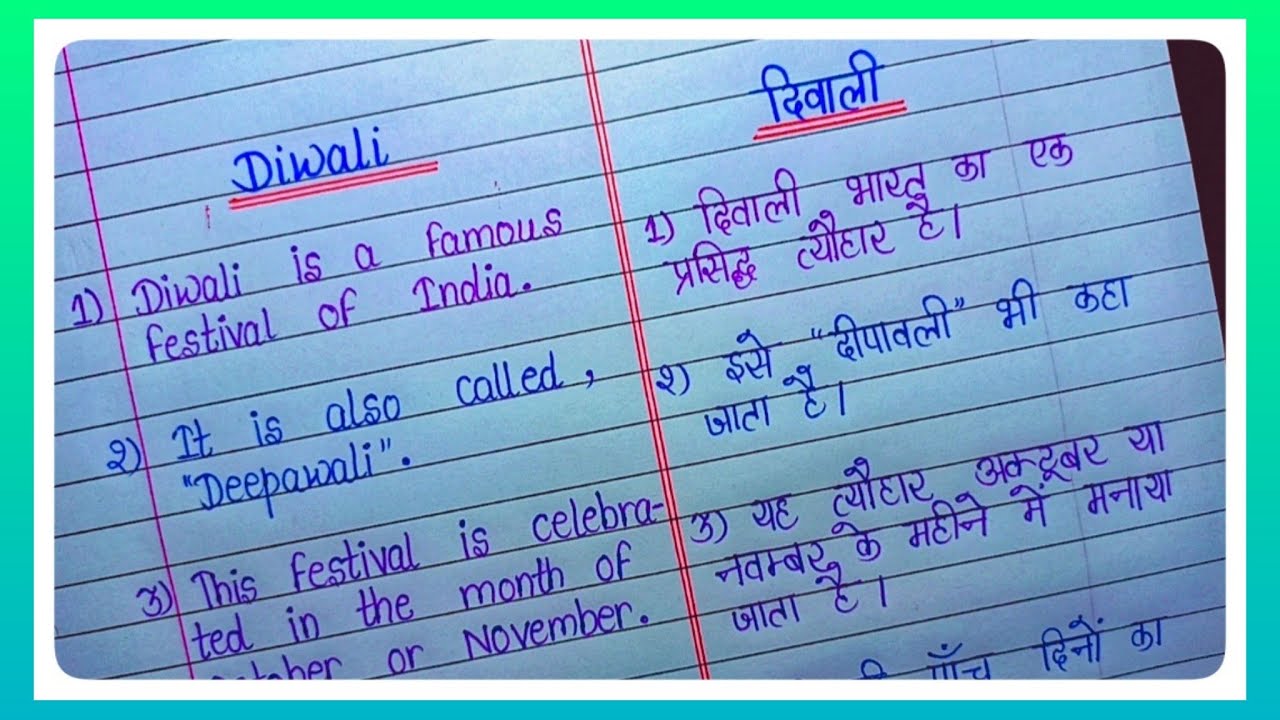 Diwali
1) Diwali is a famous
festival of India.
2) It is also called,
"Deepawali".
3) This festival is celebra-
ted in the month of
October or November.
दिवाली
1) दिवाली भारत का एक
प्रसिद्ध त्यौहार है।
२) इसे "दीपावली" भी कहा
जाता है।
3) यह त्यौहार अक्टूबर या
नवम्बर के महीने में मनाया
जाता है।
पाँच दिनों का